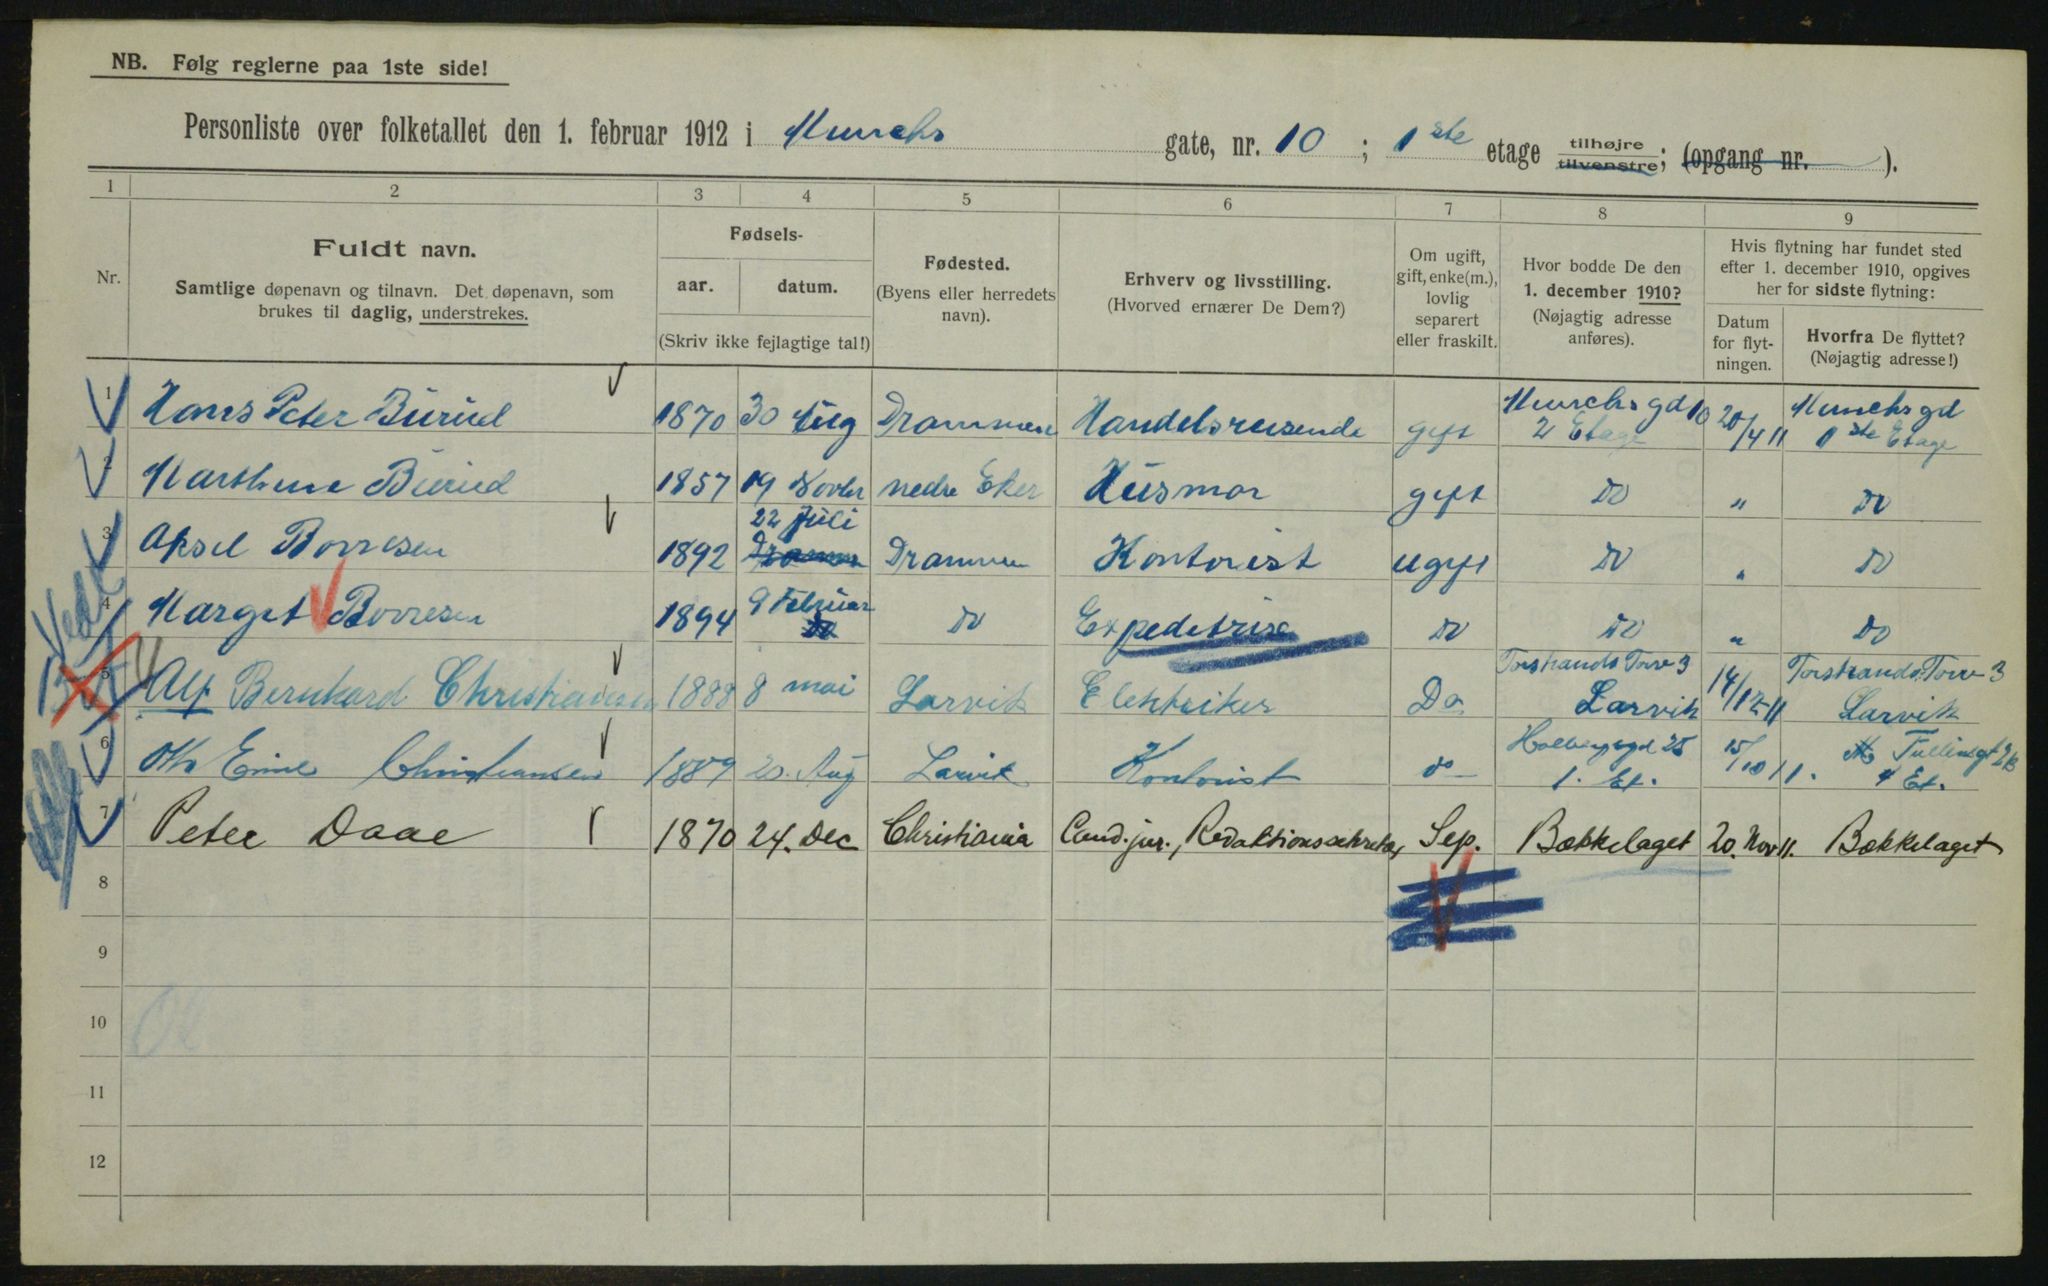 NB. Følg reglerne paa 1ste side!
Personliste over folketallet den 1. februar 1912 i Munchs gate, nr. 10 ; 1ste etage tilhøjre tilvenstre; (opgang nr. ).
1 2 3 4 5 6 7 8 9
Nr.
Fuldt navn.
Samtlige døpenavn og tilnavn. Det døpenavn, som
brukes til daglig, understrekes.
Fødsels-
aar. datum.
(Skriv ikke fejlagtige tal!)
Fødested.
(Byens eller herredets
navn).
Erhverv og livsstilling.
(Hvorved ernærer De Dem?)
Om ugift,
gift, enke(m.),
lovlig
separert
eller fraskilt.
Hvor bodde De den
1. december 1910?
(Nøjagtig adresse
anføres).
Hvis flytning har fundet sted
efter 1. december 1910, opgives
her for sidste flytning:
Datum
for flyt-
ningen.
Hvorfra De flyttet?
(Nøjagtig adresse!)
1 Hans Peter Burud 1870 30 Aug Drammen Handelsreisende gift Munchs gd 10 2 Etage 20/4 11 Munchs gd 1ste Etage
2 Marthine Burud 1857 19 Novbr nedre Eker Husmor gift Do " Do
3 Aksel Borresen 1892 22 Juli Drammen Kontorist ugift Do " Do
4 Margit Borresen 1894 9 Februar Do Expeditrise Do Do " Do
5 Alf Bernhard Christiansen 1888 8 mai Larvik Elektriker Do Torstrands Torv 3 Larvik 14/12-11 Torstrands Torv 3 Larvik
6 Otto Emil Christiansen 1889 20. Aug Larvik Kontorist do Holbergsgd 25 1. Et. 15/10 11. Tullinsgt 4 Et.
7 Peter Daae 1870 24. Dec Christiania Cand. jur., Redaktionssekretær Sep. Bækkelaget 20. Nov 11. Bækkelaget
8
9
10
11
12